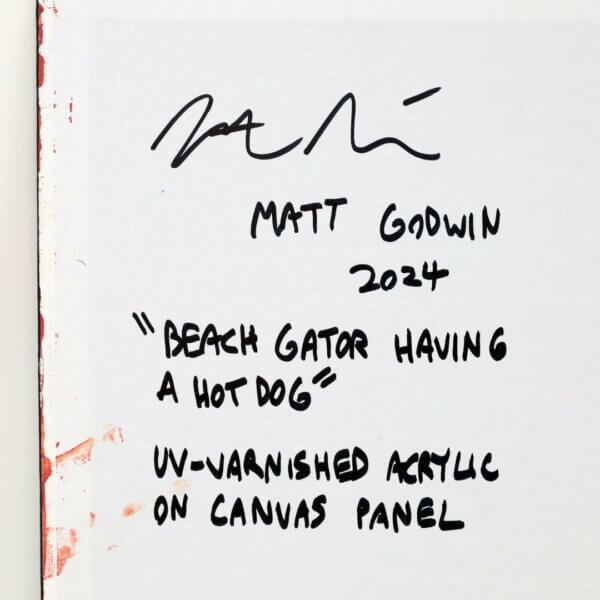 MATT GODWIN
2024
"BEACH GATOR HAVING
A HOT DOG"
UV-VARNISHED ACRYLIC
ON CANVAS PANEL